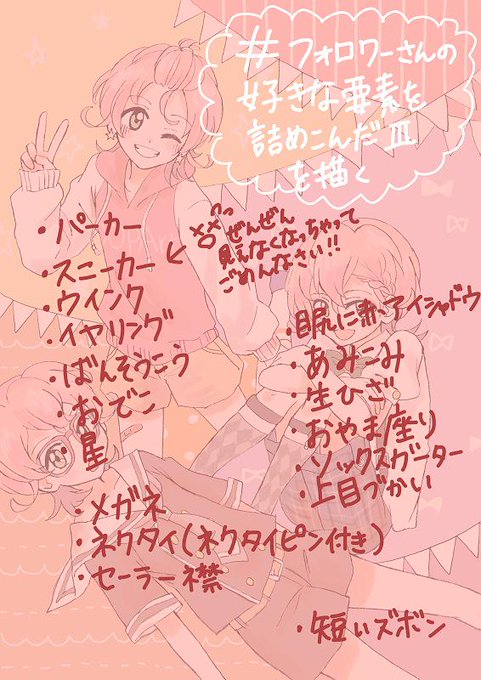 #フォロワーさんの
好きな要素を
詰めこんだⅢ
を描く
・パーカー
・スニーカー
ぜんぜん
見えなくなっちゃって
ごめんなさい!!
・ウィンク
・イヤリング
・ばんそうこう
・おでこ
・星
・目尻に赤いアイシャドウ
・あみこみ
・生ひざ
・おやま座り
・ソックスガーター
・上目づかい
・メガネ
・ネクタイ(ネクタイピン付き)
・セーラー襟
・短いズボン